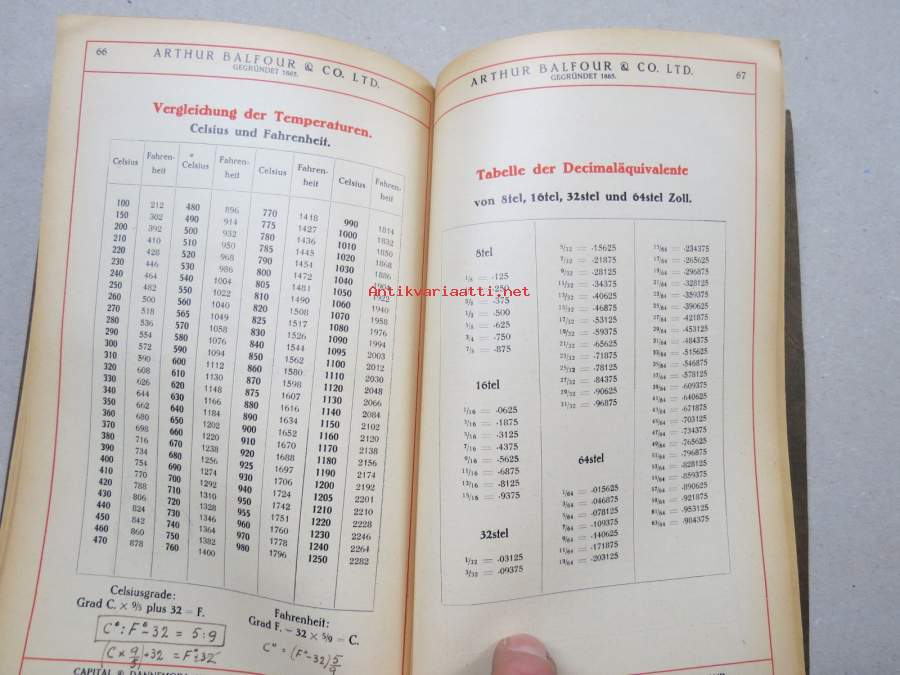 66
ARTHUR BALFOUR & CO. LTD.
GEGRÜNDET 1865.
Vergleichung der Temperaturen.
Celsius und Fahrenheit.
Celsius Fahren-heit Celsius Fahren-heit Celsius Fahren-heit Celsius Fahren-heit
100 212 480 896 770 1418 990 1814
150 302 490 914 775 1427 1000 1832
200 392 500 932 780 1436 1010 1850
210 410 510 950 785 1445 1020 1868
220 428 520 968 790 1454 1030 1886
230 446 530 986 800 1472 1040
240 464 540 1004 805 1481 1050 1922
250 482 550 1022 810 1490 1060 1940
260 500 560 1040 820 1508 1070 1958
270 518 565 1049 825 1517 1080 1976
280 536 570 1058 830 1526 1090 1994
290 554 580 1076 840 1544 1095 2003
300 572 590 1094 850 1562 1100 2012
310 590 600 1112 860 1580 1110 2030
320 608 610 1130 870 1598 1120 2048
330 626 620 1148 875 1607 1130 2066
340 644 630 1166 880 1616 1140 2084
350 662 640 1184 890 1634 1150 2102
360 680 650 1202 900 1652 1160 2120
370 698 660 1220 910 1670 1170 2138
380 716 670 1238 920 1688 1180 2156
390 734 680 1256 925 1697 1190 2174
400 754 690 1274 930 1706 1200 2192
410 770 700 1292 940 1724 1205 2201
420 788 710 1310 950 1742 1210 2210
430 806 720 1328 955 1751 1220 2228
440 824 730 1346 960 1760 1230 2246
450 842 740 1364 970 1778 1240 2264
460 860 750 1382 980 1796 1250 2282
470 878 760 1400
Celsiusgrade:
Grad C. × 9/5 plus 32 = F.
C° : F° - 32 = 5 : 9
(C × 9/5) + 32 = F°
Fahrenheit:
Grad F. — 32 × 5/9 = C.
C° = (F° - 32) 5/9
67
ARTHUR BALFOUR & CO. LTD.
GEGRÜNDET 1865.
Tabelle der Decimaläquivalente
von 8tel, 16tel, 32stel und 64stel Zoll.
8tel
1/8 = ·125
·250
3/8 = ·375
1/2 = ·500
5/8 = ·625
3/4 = ·750
7/8 = ·875
16tel
1/16 = ·0625
3/16 = ·1875
5/16 = ·3125
7/16 = ·4375
9/16 = ·5625
11/16 = ·6875
13/16 = ·8125
15/16 = ·9375
32stel
1/32 = ·03125
3/32 = ·09375
5/32 = ·15625
7/32 = ·21875
9/32 = ·28125
11/32 = ·34375
13/32 = ·40625
15/32 = ·46875
17/32 = ·53125
19/32 = ·59375
21/32 = ·65625
23/32 = ·71875
25/32 = ·78125
27/32 = ·84375
29/32 = ·90625
31/32 = ·96875
64stel
1/64 = ·015625
3/64 = ·046875
5/64 = ·078125
7/64 = ·109375
9/64 = ·140625
11/64 = ·171875
13/64 = ·203125
15/64 = ·234375
17/64 = ·265625
19/64 = ·296875
21/64 = ·328125
23/64 = ·359375
25/64 = ·390625
27/64 = ·421875
29/64 = ·453125
31/64 = ·484375
33/64 = ·515625
35/64 = ·546875
37/64 = ·578125
39/64 = ·609375
41/64 = ·640625
43/64 = ·671875
45/64 = ·703125
47/64 = ·734375
49/64 = ·765625
51/64 = ·796875
53/64 = ·828125
55/64 = ·859375
57/64 = ·890625
59/64 = ·921875
61/64 = ·953125
63/64 = ·984375
Antikvariaatti.net